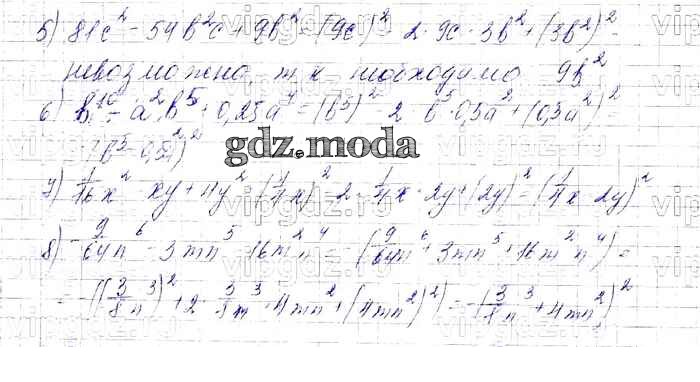 5) 81c² - 54b²c + 9b² = (9c)² - 2·9c·3b² + (3b²)² =
невозможно т.к. необходимо 9b²
6) b¹⁰ - a²b⁵ + 0,25a⁴ = (b⁵)² - 2·b⁵·0,5a² + (0,5a²)² =
= (b⁵ - 0,5a²)²
gdz.moda
7) 1/16x² - xy + 4y² = (1/4x)² - 2·1/4x·2y + (2y)² = (1/4x - 2y)²
8) -9/64n⁶ - 3mn⁵ - 16m²n⁴ = -(9/64n⁶ + 3mn⁵ + 16m²n⁴) =
= -((3/8n³)² + 2·3/8n³·4mn² + (4mn²)²) = -(3/8n³ + 4mn²)²